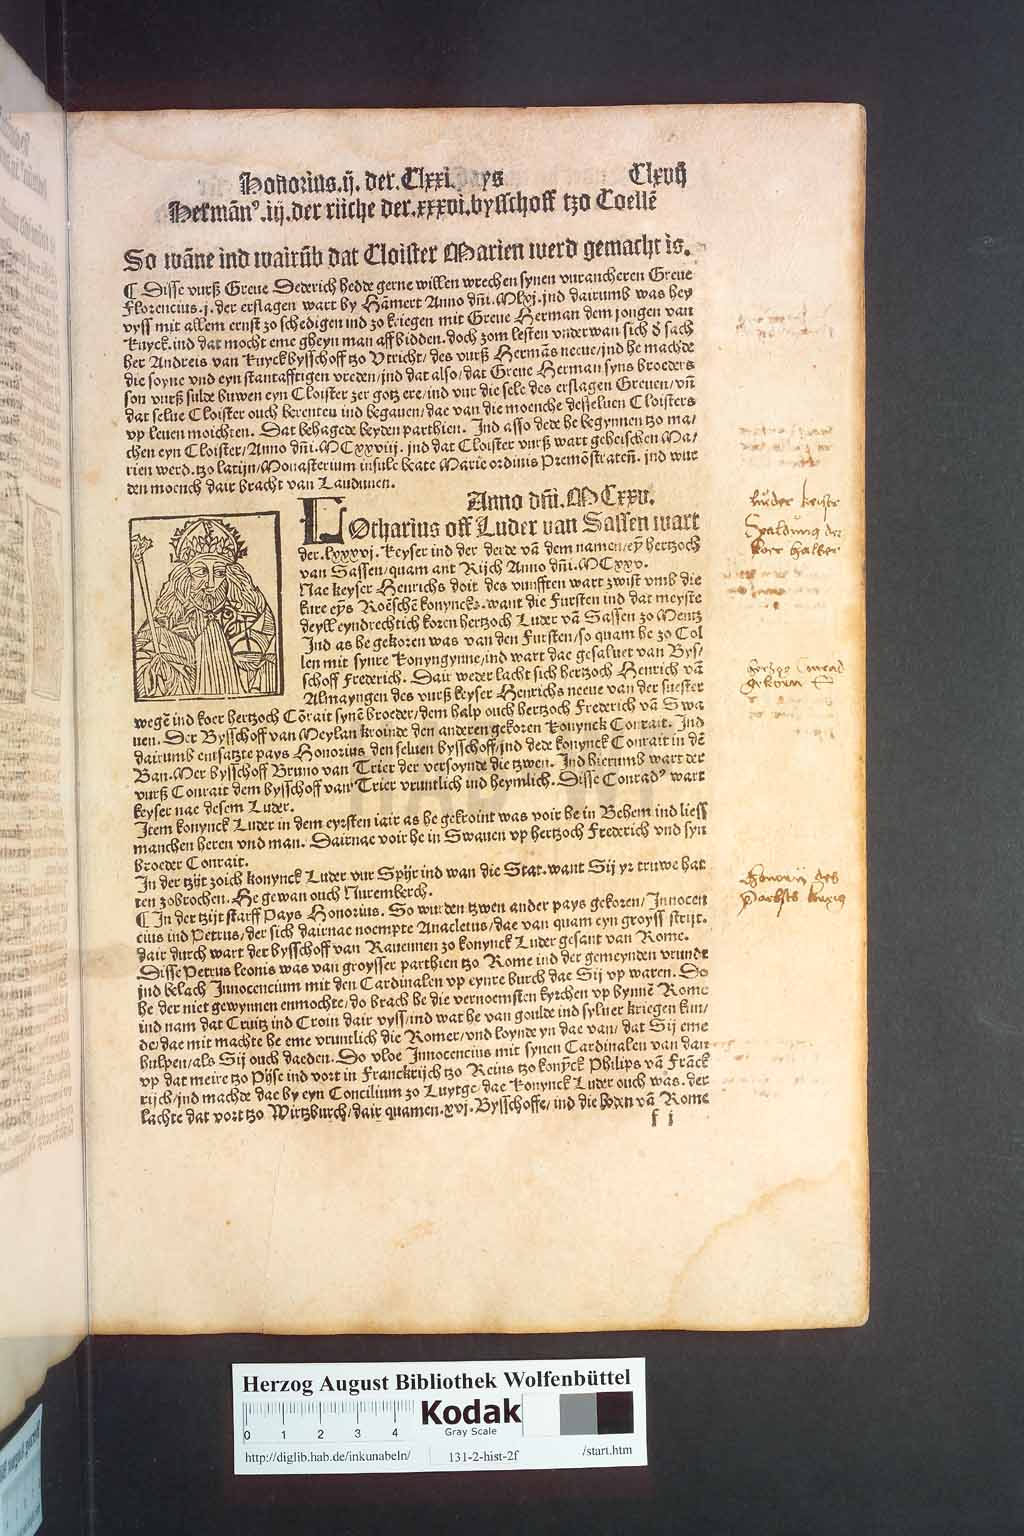 Honorius.ij. der.Clxxi.pays Clxvij
Hermãn⁹.iij.der rijche der.xxxvi.bysschoff tzo Coellẽ
So wãne ind wairũb dat Cloister Marien werd gemacht is.
¶ Disse vurß Greue Dederich hedde gerne willen wrechen synen vurancheren Greue
Florencius.j. der erslagen wart by Hãmert Anno dñi.Mlxj.ind dairumb was hey
vyss mit allem ernst zo schedigen ind zo kriegen mit Greue Herman dem jongen van
Kuyck.ind dat mocht eme gheyn man aff bidden.doch zom lesten vnderwan sich d sach
her Andreis van Kuyck bysschoff tzo Vtricht/des vurß Hermãs neeue/ind he machde
die soyne vnd eyn stantafftigen vreden/ind dat also/dat Greue Herman syns broeders
son vurß sulde buwen eyn Cloister zer gotz ere/ind vur die sele des erslagen Greuen/vñ
dat selue Cloister ouch berenten ind begauen/dae van die moenche desseluen Cloisters
vp leuen moichten. Dat behagede beyden parthien. Ind asso dede he begynnen tzo ma/
chen eyn Cloister/Anno dñi.MCxxviij. ind dat Cloister vurß wart geheischen Ma/
rien werd.tzo latijn/Monasterium insule beate Marie ordinis Premõstrateñ. ind wur
den moench dair bracht van Laudunen.
Anno dñi.MCxxv.
LOtharius off Luder van Sassen wart
der.lxxxvj.keyser ind der derde vã dem namen/eỹ hertzoch
van Sassen/quam ant Rijch Anno dñi.MCxxv.
Nae keyser Henrichs doit des vunfften wart zwist vmb die
kure eỹs Roẽschẽ konyncks.want die Fursten ind dat meyste
deyll eyndrechtich koren hertzoch Luder vã Sassen zo Mentz
Ind as he gekoren was van den Fursten/so quam he zo Col
len mit synre konyngynne/ind wart dae gesaluet van Bys/
schoff Frederich. Dair weder lacht sich hertzoch Henrich vã
Almayngen des vurß keyser Henrichs neeue van der suester
wegẽ ind koer hertzoch Cõrait synẽ broeder/dem halp ouch hertzoch Frederich vã Swa
uen. Der Bysschoff van Meylan kroinde den anderen gekoren konynck Conrait. Ind
dairumb entsatzte pays Honorius den seluen bysschoff/ind dede konynck Conrait in dẽ
Ban.Mer bysschoff Bruno van Trier der versoynde die tzwen. Ind hierumb wart der
vurß Conrait dem bysschoff van Trier vruntlich ind heymlich. Disse Conrad⁹ wart
keyser nae desem Luder.
Item konynck Luder in dem eyrsten iair as he gekroint was voir he in Behem ind liess
manchen heren vnd man. Dairnae voir he in Swauen vp hertzoch Frederich vnd syn
broeder Conrait.
In der tzijt zoich konynck Luder vur Spijr ind wan die Stat.want Sij yr truwe hat
ten zobrochen. He gewan ouch Nuremberch.
¶ In der tzijt starff Pays Honorius. So wurden tzwen ander pays gekoren/Innocen
cius ind Petrus/der sich dairnae noempte Anacletus/dae van quam eyn groyss strijt.
dair durch wart der bysschoff van Rauennen zo konynck Luder gesant van Rome.
Disse Petrus leonis was van groysser parthien tzo Rome ind der gemeynden vrundt
ind belach Innocencium mit den Cardinalen vp eynre burch dae Sij vp waren. Do
he der niet gewynnen enmochte/do brach he die vernoemsten kyrchen vp bynnẽ Rome
ind nam dat Cruitz ind Croin dair vyss/ind wat he van goulde ind syluer kriegen kun/
de/dae mit machte he eme vruntlich die Romer/vnd loynde yn dae van/dat Sij eme
hulpen/als Sij ouch daeden. Do vloe Innocencius mit synen Cardinalen van dan
vp dat meire tzo Pijse ind vort in Franckrijch tzo Reins tzo konỹck Philips vã Frãck
rijch/ind machde dae by eyn Concilium zo Luytge/dae konynck Luder ouch was. der
lachte dat vort tzo Wirtzburch/dair quamen.xvj.Bysschoffe/ind die boden vã Rome
f j
luder keiser
Spaldung der
koer halber
hertzog Conrad
gekoren
Honorij des
Herzog August Bibliothek Wolfenbüttel
0 1 2 3 4
Kodak
Gray Scale
http://diglib.hab.de/inkunabeln/ 131-2-hist-2f /start.htm